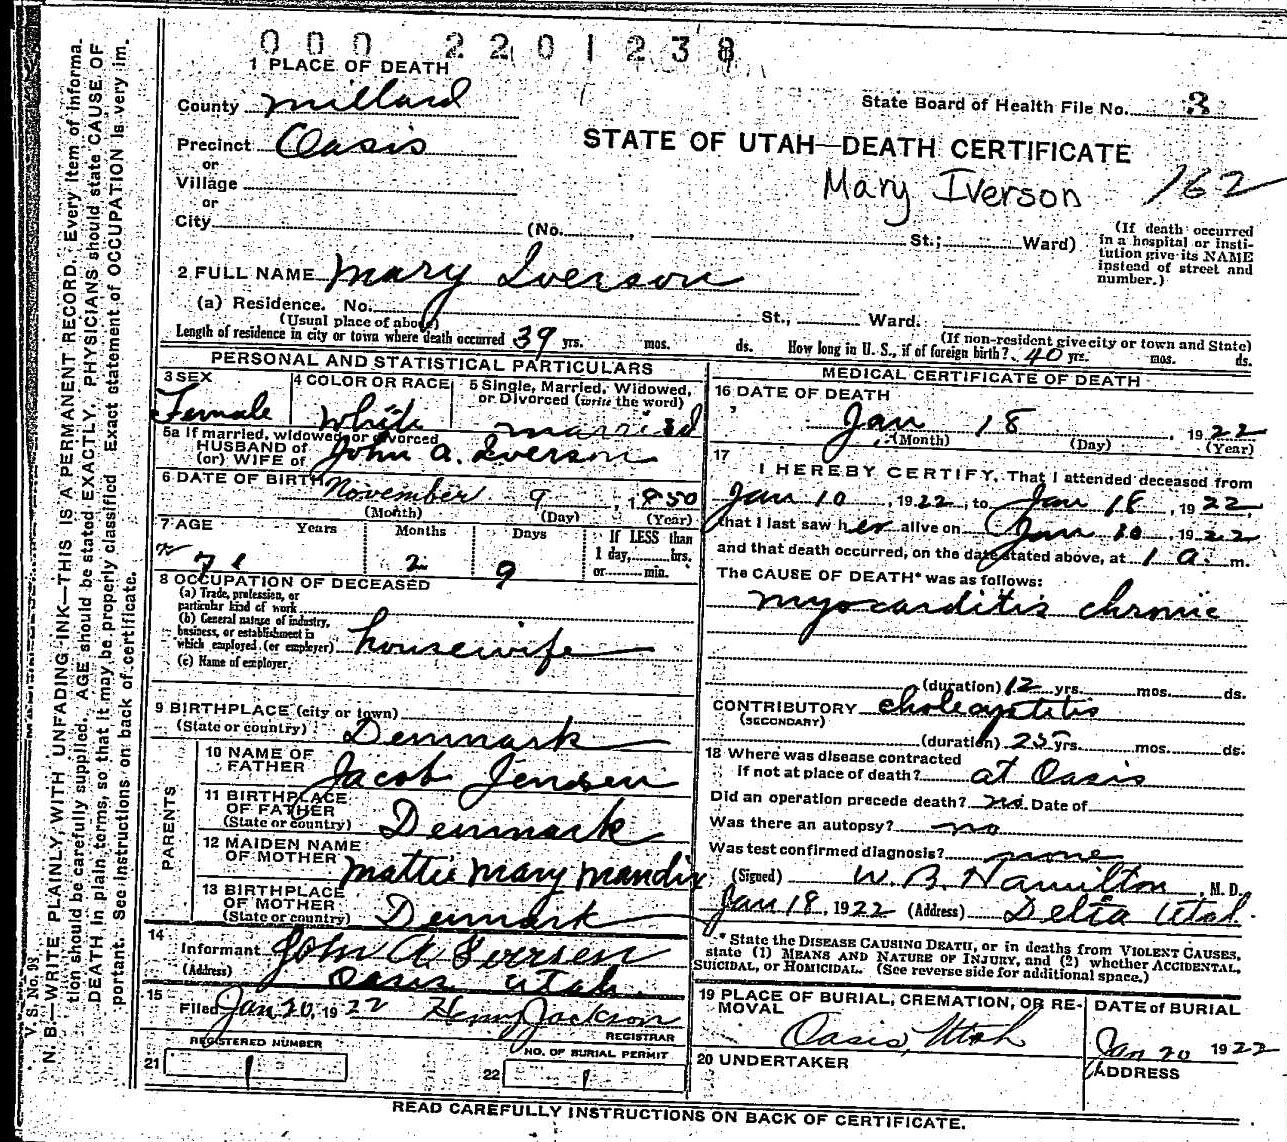 000 2201238
1 PLACE OF DEATH
County Millard
State Board of Health File No. 3
Precinct Oasis
STATE OF UTAH—DEATH CERTIFICATE
or
Village
Mary Iverson 162
or
City (No. , St.; Ward)
(If death occurred in a hospital or institution give its NAME instead of street and number.)
2 FULL NAME Mary Iverson
(a) Residence. No. St., Ward.
(Usual place of above)
(If non-resident give city or town and State)
Length of residence in city or town where death occurred 39 yrs. mos. ds. How long in U. S., if of foreign birth? 40 yrs. mos. ds.
PERSONAL AND STATISTICAL PARTICULARS
3 SEX
Female
4 COLOR OR RACE
White
5 Single, Married, Widowed, or Divorced (write the word)
married
5a If married, widowed or divorced
HUSBAND of
(or) WIFE of John A. Iverson
6 DATE OF BIRTH November 9, 1850
(Month) (Day) (Year)
7 AGE Years Months Days If LESS than
1 day, hrs.
or min.
71 2 9
8 OCCUPATION OF DECEASED
(a) Trade, profession, or
particular kind of work
(b) General nature of industry,
business, or establishment in
which employed (or employer) housewife
(c) Name of employer
9 BIRTHPLACE (city or town)
(State or country) Denmark
PARENTS
10 NAME OF
FATHER Jacob Jensen
11 BIRTHPLACE
OF FATHER
(State or country) Denmark
12 MAIDEN NAME
OF MOTHER Mattie Mary Mandix
13 BIRTHPLACE
OF MOTHER
(State or country) Denmark
14
Informant John A Iversen
(Address) Oasis Utah.
15
Filed Jan 20, 1922 Henry Jackson
REGISTRAR
REGISTERED NUMBER
21 1
NO. OF BURIAL PERMIT
22 1
MEDICAL CERTIFICATE OF DEATH
16 DATE OF DEATH
Jan 18, 1922
(Month) (Day) (Year)
17
I HEREBY CERTIFY, That I attended deceased from
Jan 10, 1922, to Jan 18, 1922,
that I last saw her alive on Jan 10, 1922
and that death occurred, on the date stated above, at 1 a. m.
The CAUSE OF DEATH* was as follows:
myocarditis chronic
(duration) 12 yrs. mos. ds.
CONTRIBUTORY cholecystitis
(SECONDARY)
(duration) 25 yrs. mos. ds.
18 Where was disease contracted
If not at place of death? at Oasis
Did an operation precede death? no. Date of
Was there an autopsy? no
Was test confirmed diagnosis? none
(Signed) W. B. Hamilton, M. D.
Jan 18, 1922 (Address) Delta Utah.
* State the DISEASE CAUSING DEATH, or in deaths from VIOLENT CAUSES,
state (1) MEANS AND NATURE OF INJURY, and (2) whether ACCIDENTAL,
SUICIDAL, or HOMICIDAL. (See reverse side for additional space.)
19 PLACE OF BURIAL, CREMATION, OR RE-
MOVAL
Oasis, Utah
DATE of BURIAL
Jan 20 1922
20 UNDERTAKER
ADDRESS
READ CAREFULLY INSTRUCTIONS ON BACK OF CERTIFICATE.
V. S. No. 98
N. B.—WRITE PLAINLY, WITH UNFADING INK—THIS IS A PERMANENT RECORD. Every item of informa-
tion should be carefully supplied. AGE should be stated EXACTLY. PHYSICIANS should state CAUSE OF
DEATH in plain terms, so that it may be properly classified. Exact statement of OCCUPATION is very im-
portant. See instructions on back of certificate.